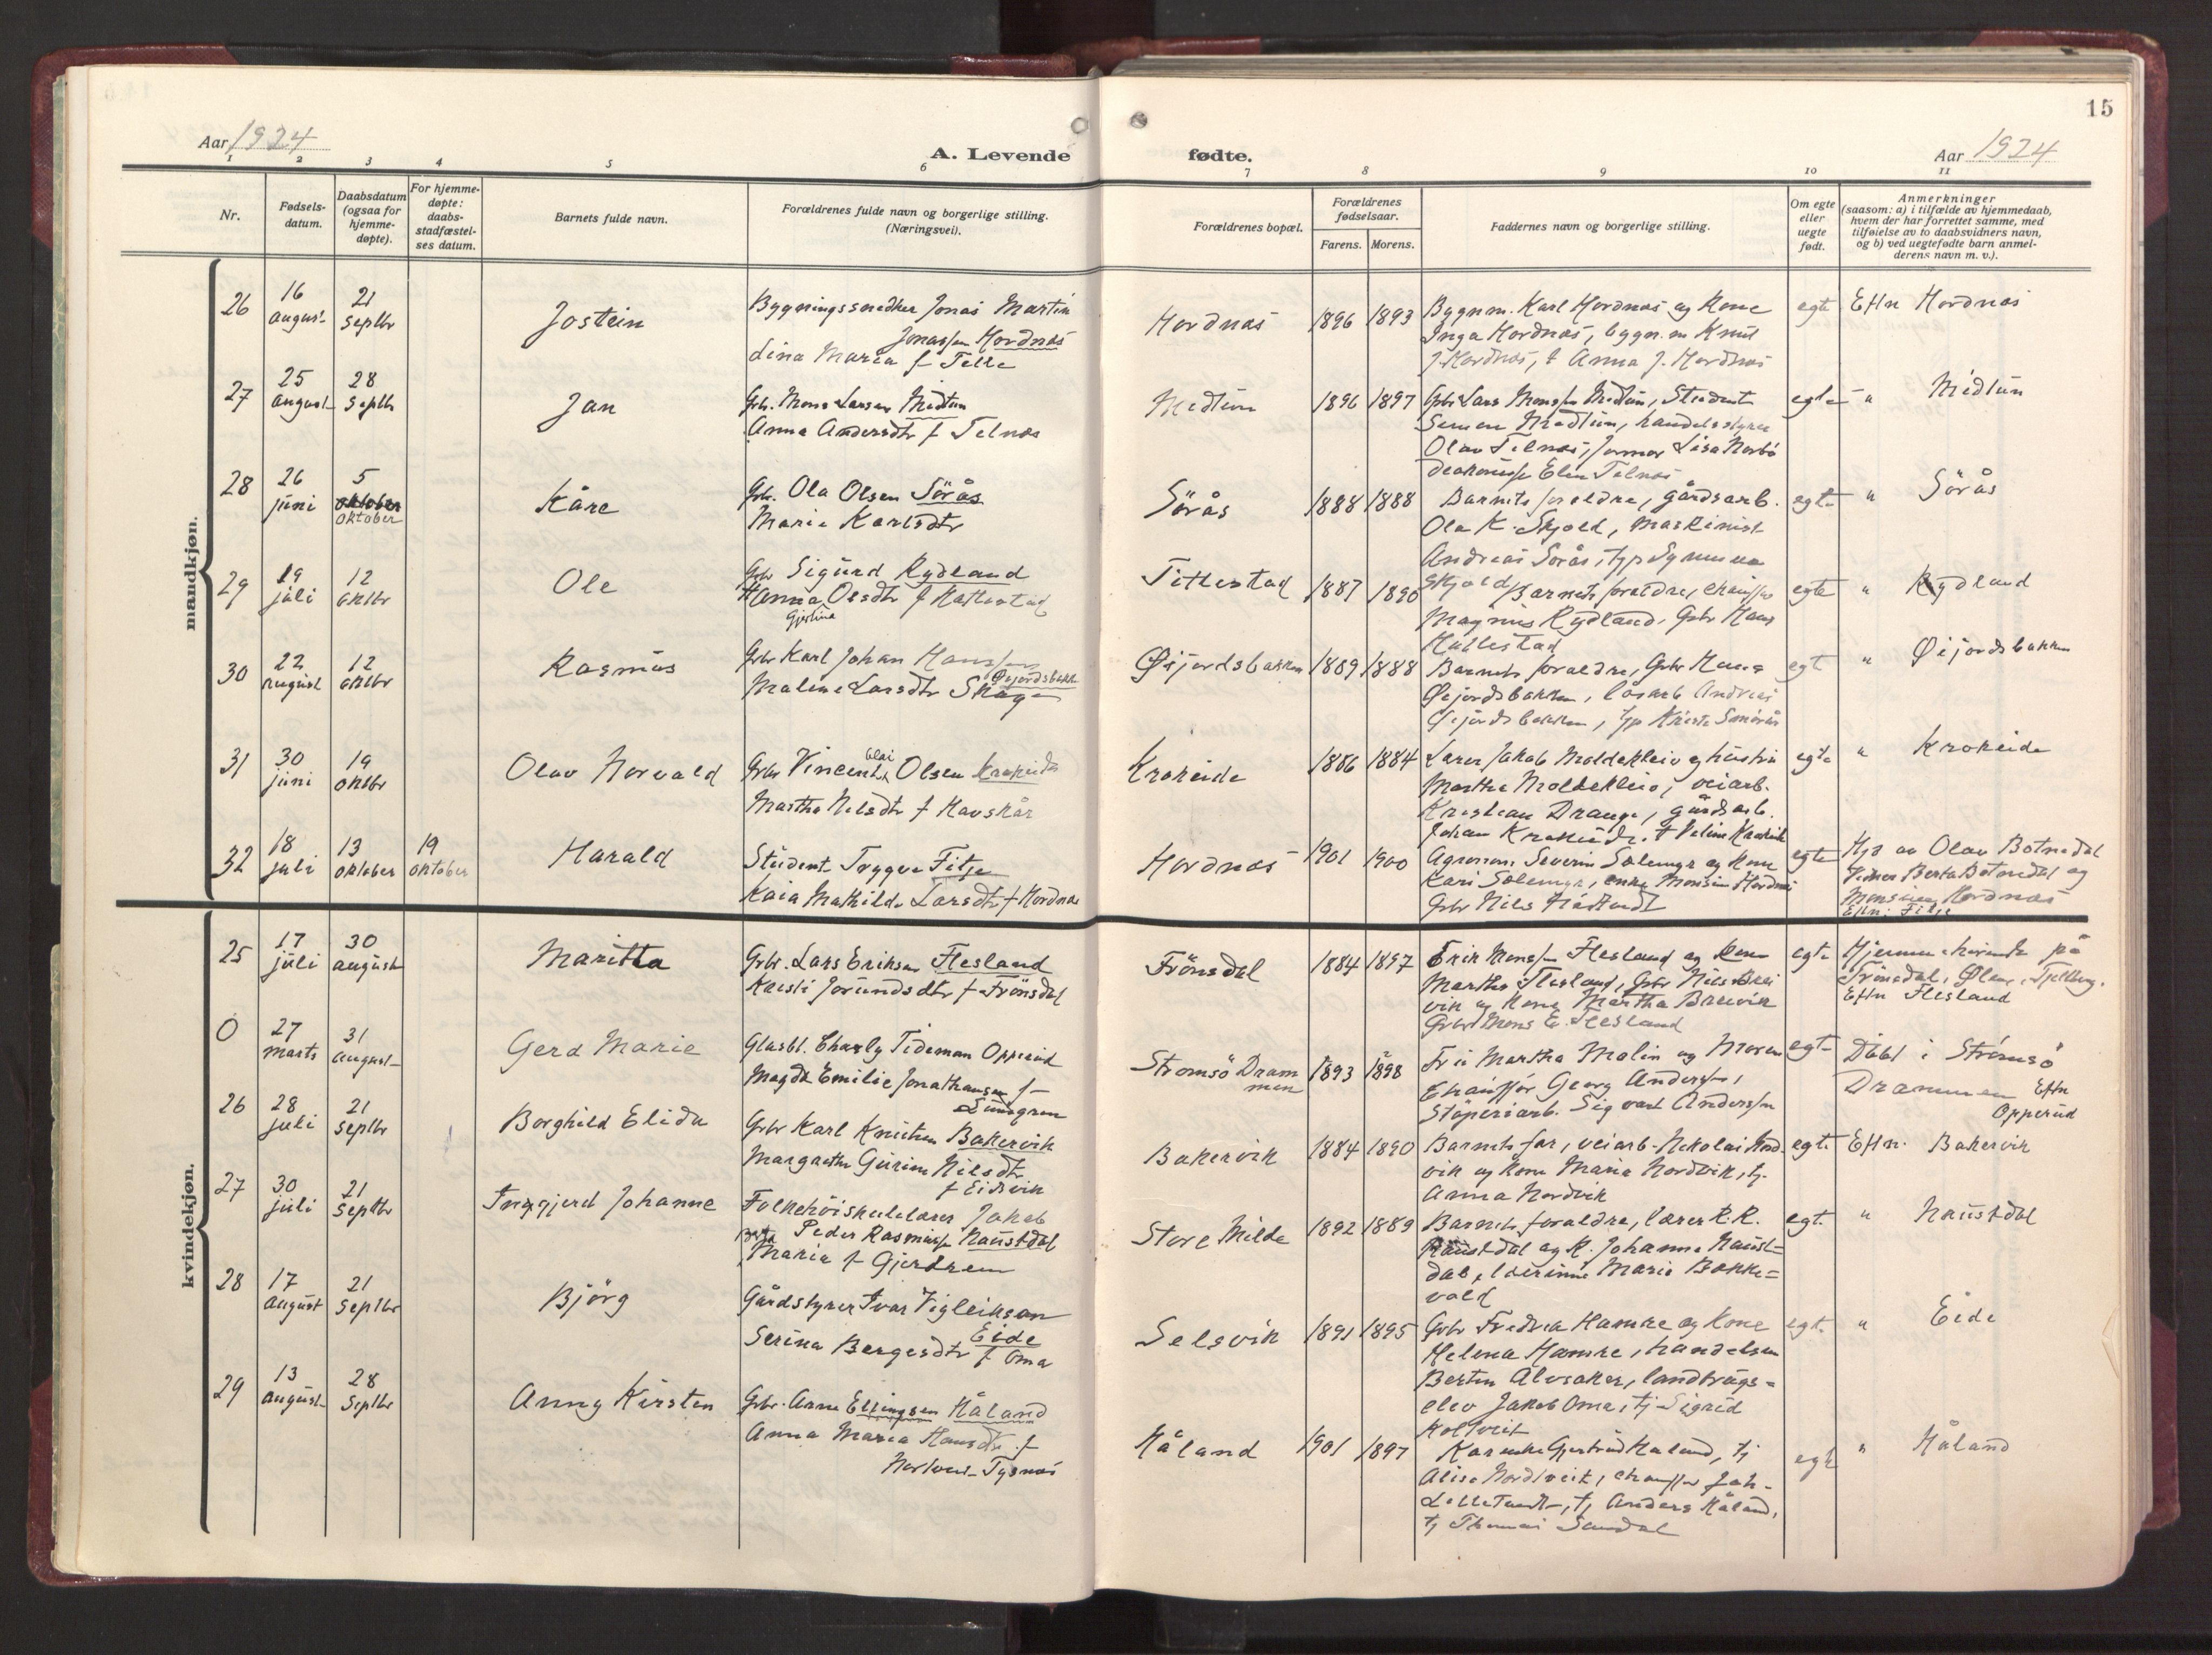 15
Aar 1924
A. Levende
fødte.
Aar 1924
1 2 3 4 5 6 7 8 9 10 11
Nr.
Fødsels-
datum.
Daabsdatum
(ogsaa for
hjemme-
døpte).
For hjemme-
døpte:
daabs-
stadfæstel-
ses datum.
Barnets fulde navn.
Forældrenes fulde navn og borgerlige stilling.
(Næringsvei).
Forældrenes bopæl.
Forældrenes
fødselsaar.
Farens. Morens.
Faddernes navn og borgerlige stilling.
Om egte
eller
uegte
født.
Anmerkninger
(saasom: a) i tilfælde av hjemmedaab,
hvem der har forrettet samme, med
tilføielse av to daabsvidners navn,
og b) ved uegtefødte barn anmel-
derens navn m. v.).
mandkjøn.
26
16
august
21
septbr
Jostein
Bygningssnedker Jonas Martin
Jonassen Hordnæs
Lina Maria f Telle
Hordnæs
1896 1893
Bygnm. Karl Hordnæs og Kone
Inga Hordnæs, bygn.m Knut
J. Hordnæs, t Anna J. Hordnæs
egte
Eftn Hordnæs
27
25
august
28
septbr
Jan
Gbr. Mons Larsen Midtun
Anna Andersdtr f Telnæs
Midtun
1896 1897
Gbr Lars Monssen Midtun, Student
Midtun, handelsstyrer
Olav Telnæs, Lisa
Elin Telnæs
egte
" Midtun
28
26
juni
5
oktober
oktober
Kåre
Gbr. Ola Olsen Sörås
Marie Karlsdtr
Sörås
1888 1888
Barnets foraldre, gårdsarb.
Ola K. Skjold, maskinist
Andreas Sorås,
Skjold
egte
" Sörås
29
19
juli
12
oktbr
Ole
Gbr Sigurd Rydland
Hanna Olsdtr f Hattestad
Gjertina
Tittestad
1887 1890
Barnets foraldre,
Magnus Rydland, Gbr Hans
Hattestad
egte
" Rydland
30
22
august
12
oktbr
Rasmus
Gbr Karl Johan Hanssen
Øijordsbakk
Maline Larsdtr Skage
Øijordsbakken
1889 1888
Barnets foraldre, Gbr Hans
Øijordsbakken, Andreas
Øijordsbakken,
egt
" Øijordsbakken
31
30
juni
19
oktbr
Olav Norvald
Gbr Vincent Olai Olsen Krokeide
Martha Nilsdtr f Havskår
Krokeide
1886 1884
Larer Jakob Moldekleiv og hustru
Martha Moldekleiv, veiarb.
Kristian Drange, gårdsarb.
Johan Krokeide,
egte
" Krokeide
32
18
juli
13
oktober
19
oktober
Harald
Student Trygve Fitje
Kaia Mathilde Larsdtr f Hordnæs
Hordnæs
1901 1900
Agronom Severin og kone
Kari enke Monsine Hordnæs
Gbr Nils
egte
Hjd av Olav Botnedal
Berta Botnedal og
Monsine Hordnæs
Eftn: Fitje
kvindekjøn.
25
17
juli
30
august
Maritta
Gbr. Lars Eriksen Flesland
Kristi Jorundsdtr f Frönsdal
Frönsdal
1884 1897
Erik Monssen Flesland og kone
Martha Flesland, Gbr Nils Brei
vik og kone Martha Breivik
Gbr Mons E. Flesland
egte
Frönsdal, Ølen,
Eftn Flesland
0
27
marts
31
august
Gerd Marie
Glasbl. Charly Tideman Opperud
Magda Emilie Jonathansen f
Lundgren
Stromsö Dram
men
1893 1898
Fru Martha Molin og Moren
Chauffør Georg Anderssen,
Stöperiarb. Sigvart Anderssen
egte
Döbt i Strömsö
Drammen Eftn
Opperud
26
28
juli
21
septbr
Borghild Elida
Gbr Karl Knutsen Bakervik
Margrethe Gurine Nilsdtr
f Eidsvik
Bakervik
1884 1890
Barnets far, veiarb. Nikolai Nord
vik og kone Maria Nordvik, tj.
Anna Nordvik
egte
Eftn. Bakervik
27
30
juli
21
septbr
Inggjerd Johanne
Folkehöiskulelærer Jakob
Peder Rasmussen Naustdal
Berta Maria f Gjerdrem
Store Milde
1892 1889
Barnets foraldre, lærer R. R.
Naustdal og K. Johanne Naust-
dal, lærerinne Marie Bakke=
vold
egt.
" Naustdal
28
17
august
21
septbr
Björg
Gårdstyrer Ivar Vigleiksen
Eide
Serina Bergesdtr f Oma
Selsvik
1891 1895
Gbr Fredrik Hamre og Kone
Helena Hamre, handelsm
Bertin Alvsaker, landbrugs=
elev Jakob Oma, tj Sigrid
Koltveit
egt.
" Eide
29
13
august
28
septbr
Anny Kirsten
Gbr. Arne Ellingsen Håland
Anna Maria Hansdtr f
Tysnes
Håland
1901 1897
Gjertrud Håland, tj
Alise Nordtveit, chauffør Joh.
tj Anders Håland,
tj Thomas Sandal
egte
" Håland